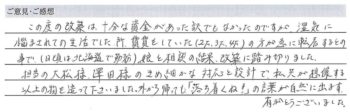 ご意見・ご感想
この度の改築は、十分な資金があった訳でもなかったのですが 湿気に
悩まされての生活でした所 賃貸をしていた(2人、3人、4人)の方が急に転居するとの
事で、(1日は北海道で勤務)娘も相談の結果、改築に踏み切りました。
担当の大松様 澤田様のきめ細かな対応と設計で私共が想像する
以上の物を造って下さいました。外から帰っても「落ち着くね!」の言葉が自然に出ます
有がとうございました。